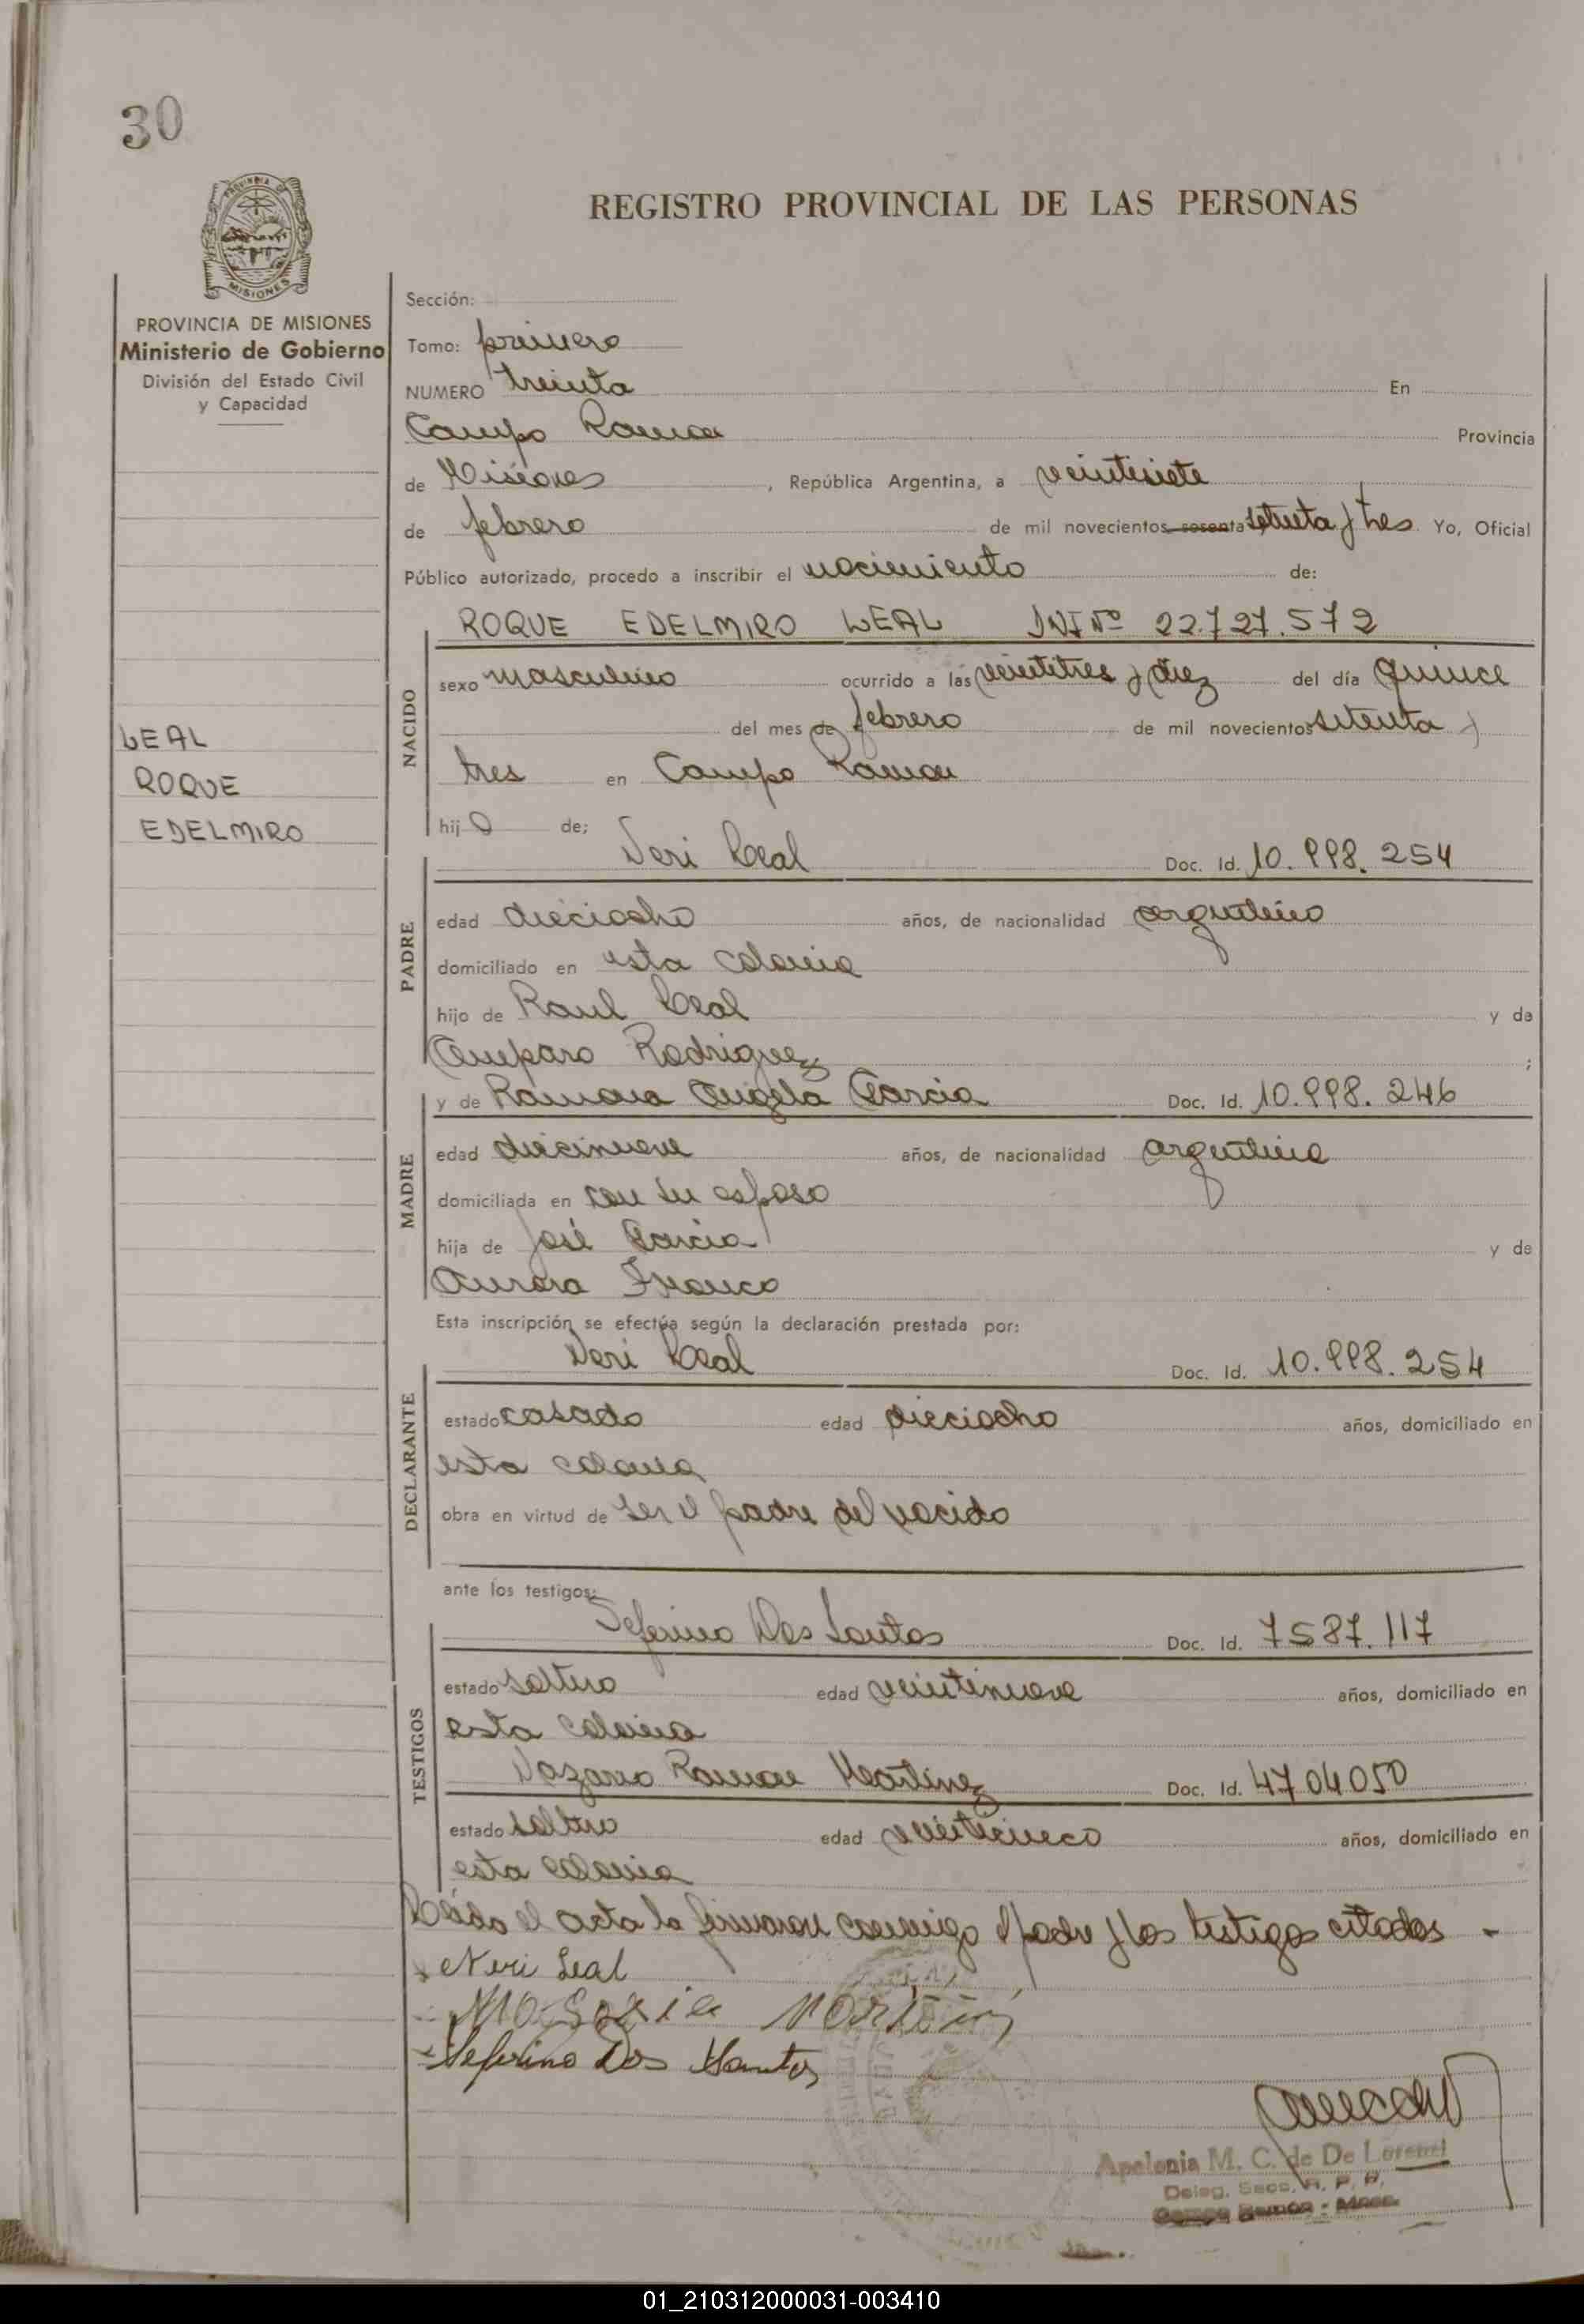 30
REGISTRO PROVINCIAL DE LAS PERSONAS
PROVINCIA DE MISIONES
Ministerio de Gobierno
División del Estado Civil
y Capacidad
LEAL
ROQUE
EDELMIRO
Sección:
Tomo: primero
NUMERO treinta En
Campo Ramon Provincia
de Misiones, República Argentina, a veintisiete
de febrero de mil novecientos sesenta setenta y tres Yo, Oficial
Público autorizado, procedo a inscribir el nacimiento de:
ROQUE EDELMIRO LEAL DNI Nº 22.727.572
NACIDO
sexo masculino ocurrido a las veintitres y diez del día quince
del mes de febrero de mil novecientos setenta y
tres en Campo Ramon
hijo de;
Neri Leal Doc. Id. 10.998.254
PADRE
edad dieciocho años, de nacionalidad argentino
domiciliado en esta colonia
hijo de Raul Leal y de
Amparo Rodriguez ;
y de Ramona Angela Garcia Doc. Id. 10.998.246
MADRE
edad diecinueve años, de nacionalidad argentina
domiciliada en con su esposo
hija de José Garcia y de
Aurora Franco
Esta inscripción se efectúa según la declaración prestada por:
Neri Leal Doc. Id. 10.998.254
DECLARANTE
estado casado edad dieciocho años, domiciliado en
esta colonia
obra en virtud de ser el padre del nacido
ante los testigos:
Seferino Dos Santos Doc. Id. 7587.117
TESTIGOS
estado soltero edad veintinueve años, domiciliado en
esta colonia
Nazario Ramon Martinez Doc. Id. 4704050
estado soltero edad veinticinco años, domiciliado en
esta colonia
Leida el acta la firmaron conmigo el padre y los testigos citados -
Neri Leal
Seferino Dos Santos
Apolonia M. C. de De Lorenzi
Deleg. Secc. R. P. P.
Campo Ramón - Mnes.
01_210312000031-003410